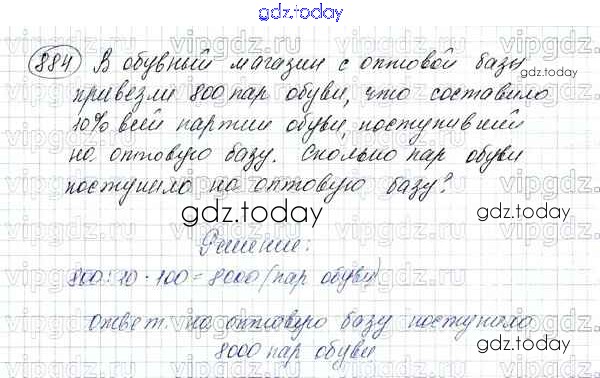 gdz.today
884 В обувный магазин с оптовой базы
привезли 800 пар обуви, что составило
10% всей партии обуви, поступившей
на оптовую базу. Сколько пар обуви
поступило на оптовую базу?
gdz.today
Решение:
800:10·100=8000 (пар обуви)
ответ: на оптовую базу поступило
8000 пар обуви